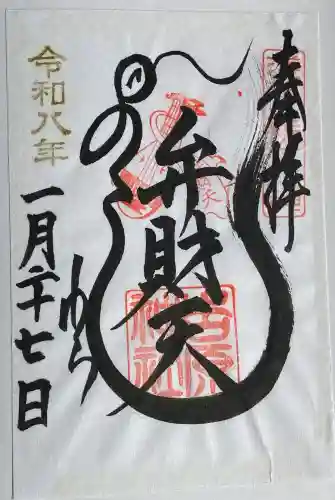 奉拝
弁財天
令和八年
一月二十七日